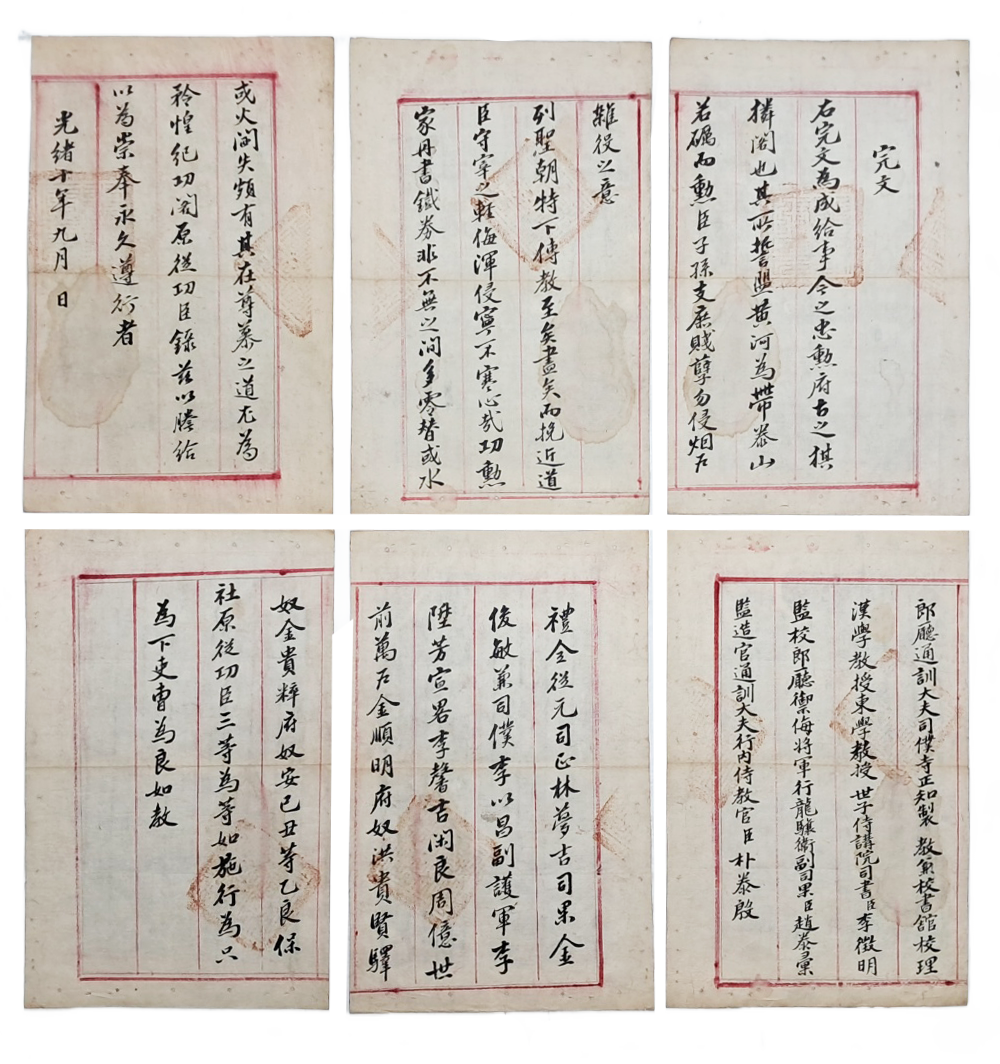 完文
右完文爲成給事今之忠勳府古之棋
獜閣也其所誓盟黃河爲帶泰山
若礪而勳臣子孫支庶賤孽勿侵烟戶
雜役之意
列聖朝特下傳教至矣盡矣而挽近道
臣守宰之輕侮渾侵寧不寒心哉功勳
家丹書鐵券非不無之間多零替或水
或火間失頗有其在尊慕之道尤爲
矜惶紀功閣原從功臣錄玆以謄給
以為崇奉永久遵行者
光緖十年九月 日
郎廳通訓大夫司僕寺正知製 敎兼校書館校理
漢學教授東學教授 世子侍講院司書臣李徵明
監校郎廳禦侮將軍行龍驤衛副司果臣趙泰彙
監造官通訓大夫行內侍敎官臣朴泰殷
禮仝從元司正林夢古司果金
俊敏兼司僕李以昌副護軍李
陞芳宣畧李馨吉閑良周億世
前萬戶金順明府奴洪貴賢驛
奴金貴粹府奴安已丑等乙良保
社原從功臣三等為等如施行為只
為下吏曹為良如教